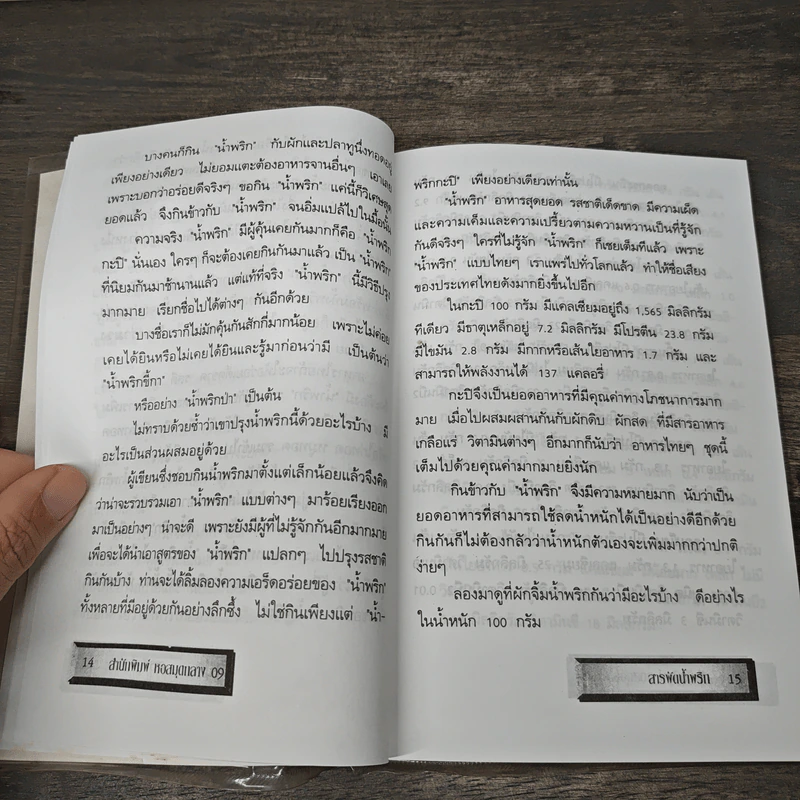 บางคนก็กิน "น้ำพริก" กับผักและปลาทูนึ่งทอดอยู่
เพียงอย่างเดียว ไม่ยอมแตะต้องอาหารจานอื่นๆ เอาเลย
เพราะบอกว่าอร่อยดีจริงๆ ขอกิน "น้ำพริก" แค่นี้ก็วิเศษสุด
ยอดแล้ว จึงกินข้าวกับ "น้ำพริก" จนอิ่มแปล้ไปในมื้อนั้น
ความจริง "น้ำพริก" มีผู้คุ้นเคยกันมากก็คือ "น้ำพริก
กะปิ" นั่นเอง ใครๆ ก็จะต้องเคยกินกันมาแล้ว เป็น "น้ำพริก"
ที่นิยมกันมาช้านานแล้ว แต่แท้ที่จริง "น้ำพริก" นี้มีวิธีปรุง
มากมาย เรียกชื่อไปได้ต่างๆ กันอีกด้วย
บางชื่อเราก็ไม่มักคุ้นกันสักกี่มากน้อย เพราะไม่ค่อย
เคยได้ยินหรือไม่เคยได้ยินและรู้มาก่อนว่ามี เป็นต้นว่า
"น้ำพริกขี้กา"
หรืออย่าง "น้ำพริกป่า" เป็นต้น
ไม่ทราบด้วยซ้ำว่าเขาปรุงน้ำพริกนี้ด้วยอะไรบ้าง มี
อะไรเป็นส่วนผสมอยู่ด้วย
ผู้เขียนซึ่งชอบกินน้ำพริกมาตั้งแต่เล็กน้อยแล้วจึงคิด
ว่าน่าจะรวบรวมเอา "น้ำพริก" แบบต่างๆ มาร้อยเรียงออก
มาเป็นอย่างๆ น่าจะดี เพราะยังมีผู้ที่ไม่รู้จักกันอีกมากมาย
เพื่อจะได้นำเอาสูตรของ "น้ำพริก" แปลกๆ ไปปรุงรสชาติ
กินกันบ้าง ท่านจะได้ลิ้มลองความเอร็ดอร่อยของ "น้ำพริก"
ทั้งหลายที่มีอยู่ด้วยกันอย่างลึกซึ้ง ไม่ใช่กินเพียงแต่ "น้ำ-
14 สำนักพิมพ์ หอสมุดกลาง 09
พริกกะปิ" เพียงอย่างเดียวเท่านั้น
"น้ำพริก" อาหารสุดยอด รสชาติเด็ดขาด มีความเผ็ด
และความเค็มและความเปรี้ยวตามความหวานเป็นที่รู้จัก
กันดีจริงๆ ใครที่ไม่รู้จัก "น้ำพริก" ก็เชยเต็มทีแล้ว เพราะ
"น้ำพริก" แบบไทยๆ เราแพร่ไปทั่วโลกแล้ว ทำให้ชื่อเสียง
ของประเทศไทยดังมากยิ่งขึ้นไปอีก
ในกะปิ 100 กรัม มีแคลเซียมอยู่ถึง 1,565 มิลลิกรัม
ทีเดียว มีธาตุเหล็กอยู่ 7.2 มิลลิกรัม มีโปรตีน 23.8 กรัม
มีไขมัน 2.8 กรัม มีกากหรือเส้นใยอาหาร 1.7 กรัม และ
สามารถให้พลังงานได้ 137 แคลอรี่
กะปิจึงเป็นยอดอาหารที่มีคุณค่าทางโภชนาการมาก
มาย เมื่อไปผสมผสานกันกับผักดิบ ผักสด ที่มีสารอาหาร
เกลือแร่ วิตามินต่างๆ อีกมากก็นับว่า อาหารไทยๆ ชุดนี้
เต็มไปด้วยคุณค่ามากมายยิ่งนัก
กินข้าวกับ "น้ำพริก" จึงมีความหมายมาก นับว่าเป็น
ยอดอาหารที่สามารถใช้ลดน้ำหนักได้เป็นอย่างดีอีกด้วย
กินกันก็ไม่ต้องกลัวว่าน้ำหนักตัวเองจะเพิ่มมากกว่าปกติ
ง่ายๆ
ลองมาดูที่ผักจิ้มน้ำพริกกันว่ามีอะไรบ้าง ดีอย่างไร
ในน้ำหนัก 100 กรัม
สารพัดน้ำพริก 15